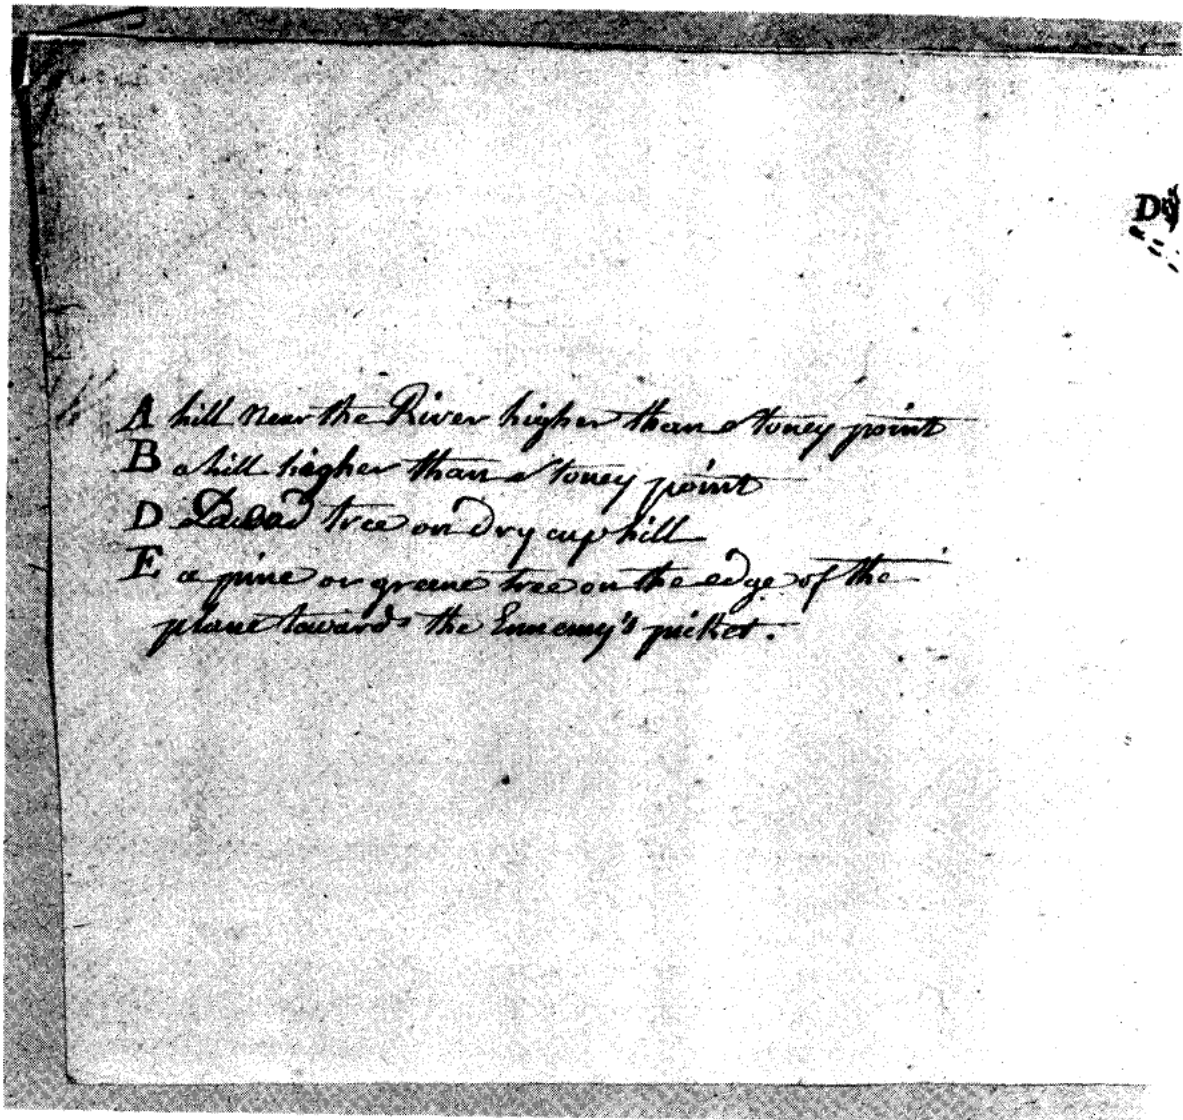 D
A hill near the River higher than stoney point
B a hill higher than stoney point
D a Dead tree on Dry cup hill
E a pine or greene tree on the edge of the
plane towards the Ennemy's picket.